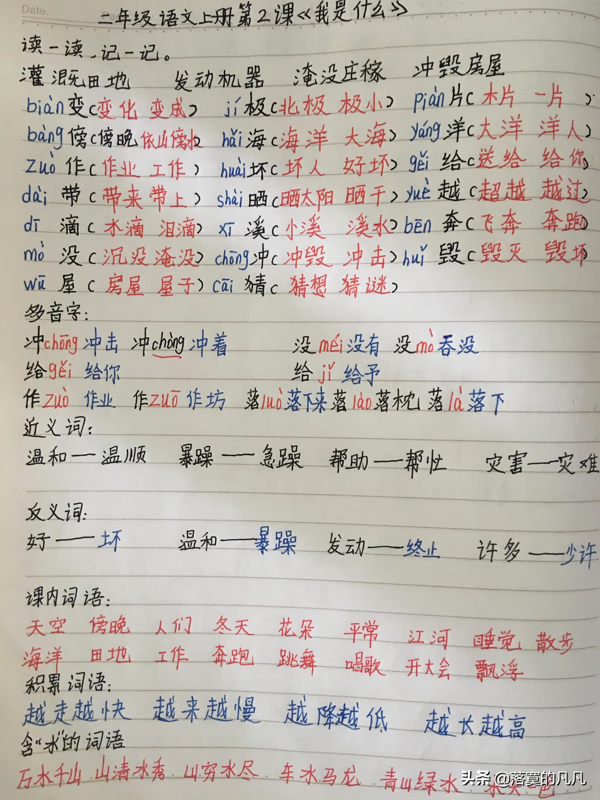 Date.
二年级语文上册第2课《我是什么》
读一读、记一记。
灌溉田地 发动机器 淹没庄稼 冲毁房屋
biàn变(变化 变成) jí极(北极 极小) piàn片(木片 一片)
bàng傍(傍晚 依山傍水) hǎi海(海洋 大海) yáng洋(大洋 洋人)
zuò作(作业 工作) huài坏(坏人 好坏) gěi给(送给 给你)
dài带(带来 带上) shài晒(晒太阳 晒干) yuè越(超越 越过)
dī滴(水滴 泪滴) xī溪(小溪 溪水) bēn奔(飞奔 奔跑)
mò没(沉没 淹没) chōng冲(冲毁 冲击) huǐ毁(毁灭 毁坏)
wū屋(房屋 屋子) cāi猜(猜想 猜谜)
多音字:
冲chōng冲击 冲chòng冲着 没méi没有 没mò吞没
给gěi给你 给jǐ给予
作zuò作业 作zuō作坊 落luò落下来 落lào落枕 落là落下
近义词:
温和——温顺 暴躁——急躁 帮助——帮忙 灾害——灾难
反义词:
好——坏 温和——暴躁 发动——终止 许多——少许
课内词语:
天空 傍晚 人们 冬天 花朵 平常 江河 睡觉 散步
海洋 田地 工作 奔跑 跳舞 唱歌 开大会 飘浮
积累词语:
越走越快 越来越慢 越降越低 越长越高
含“水”的词语
万水千山 山清水秀 山穷水尽 车水马龙 青山绿水
头条@落寞的凡凡